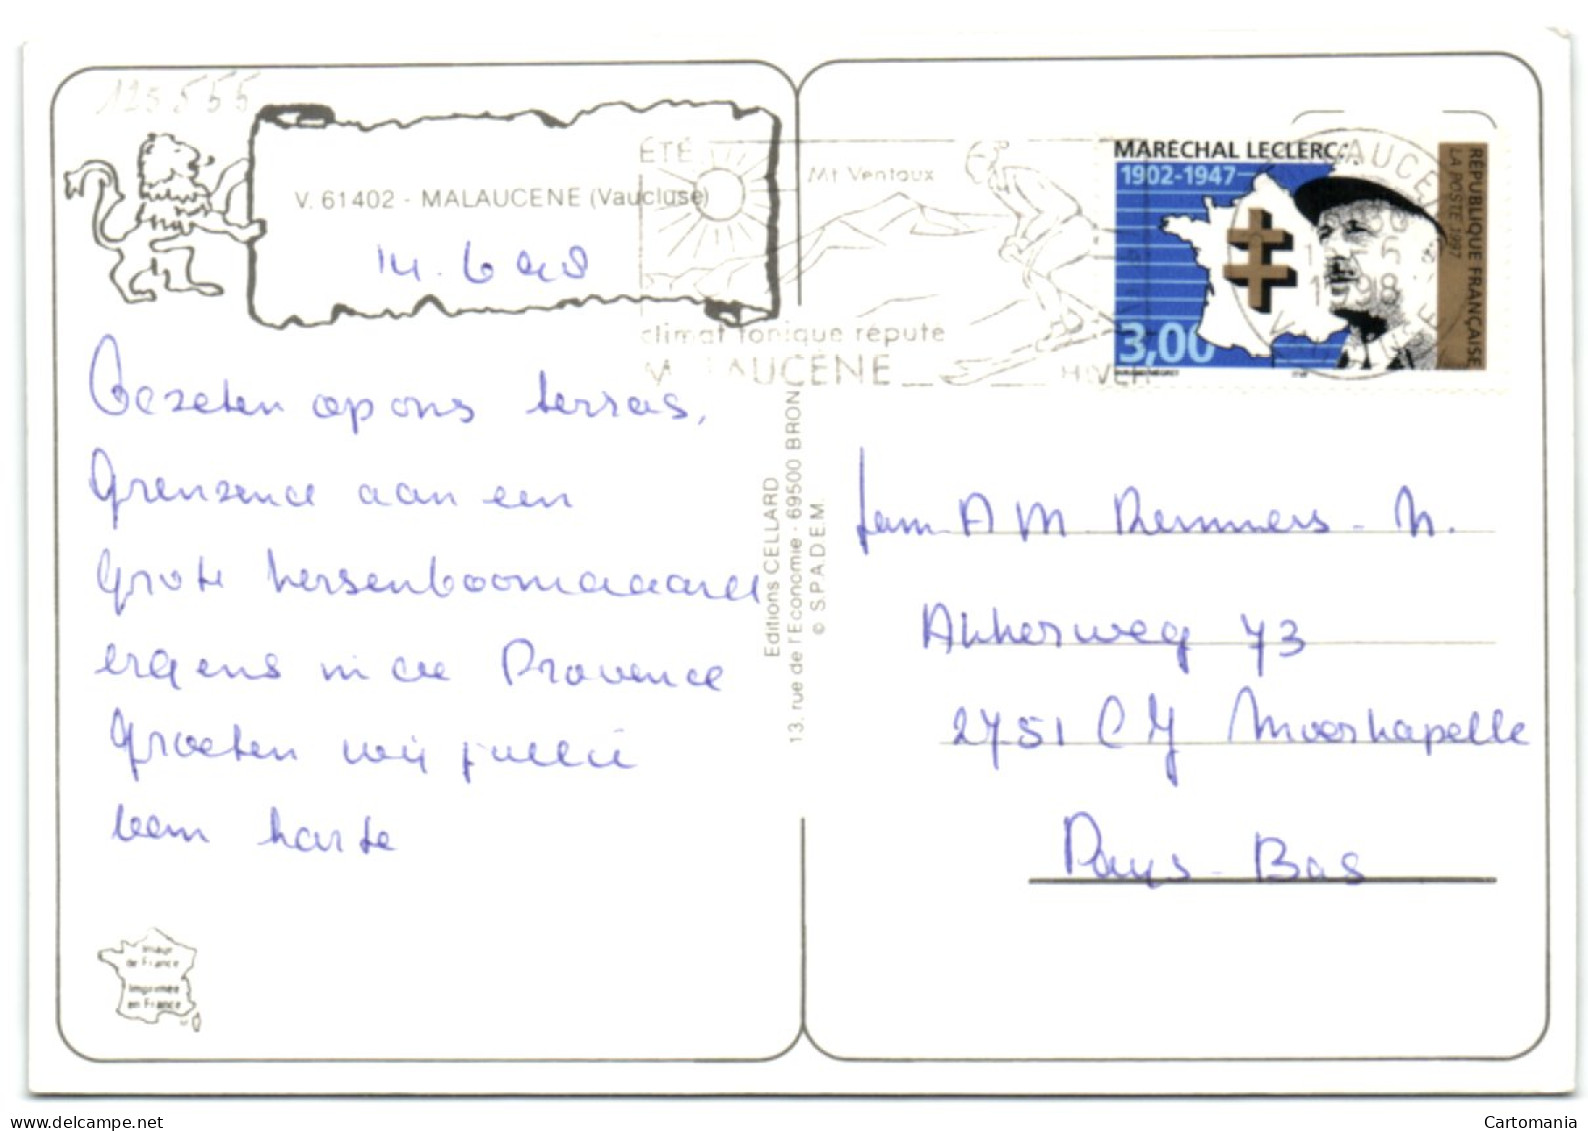 125555
V. 61402 - MALAUCENE (Vaucluse)
14. 6 98
Gezeten op ons terras,
grenzend aan een
grote kersenboomgaard
ergens in de Provence
groeten wij jullie
heel harte
Images
de France
Imprimée
en France
Editions CELLARD
13, rue de l'Economie - 69500 BRON
© S.P.A.D.E.M.
ÉTÉ
Mt Ventoux
climat tonique réputé
MALAUCÈNE
HIVER
MARÉCHAL LECLERC
1902-1947
3,00
RÉPUBLIQUE FRANÇAISE
LA POSTE 1997
Fam A M Remmers - N.
Akkerweg 73
2751 CJ Moerkapelle
Pays-Bas
Cartomania